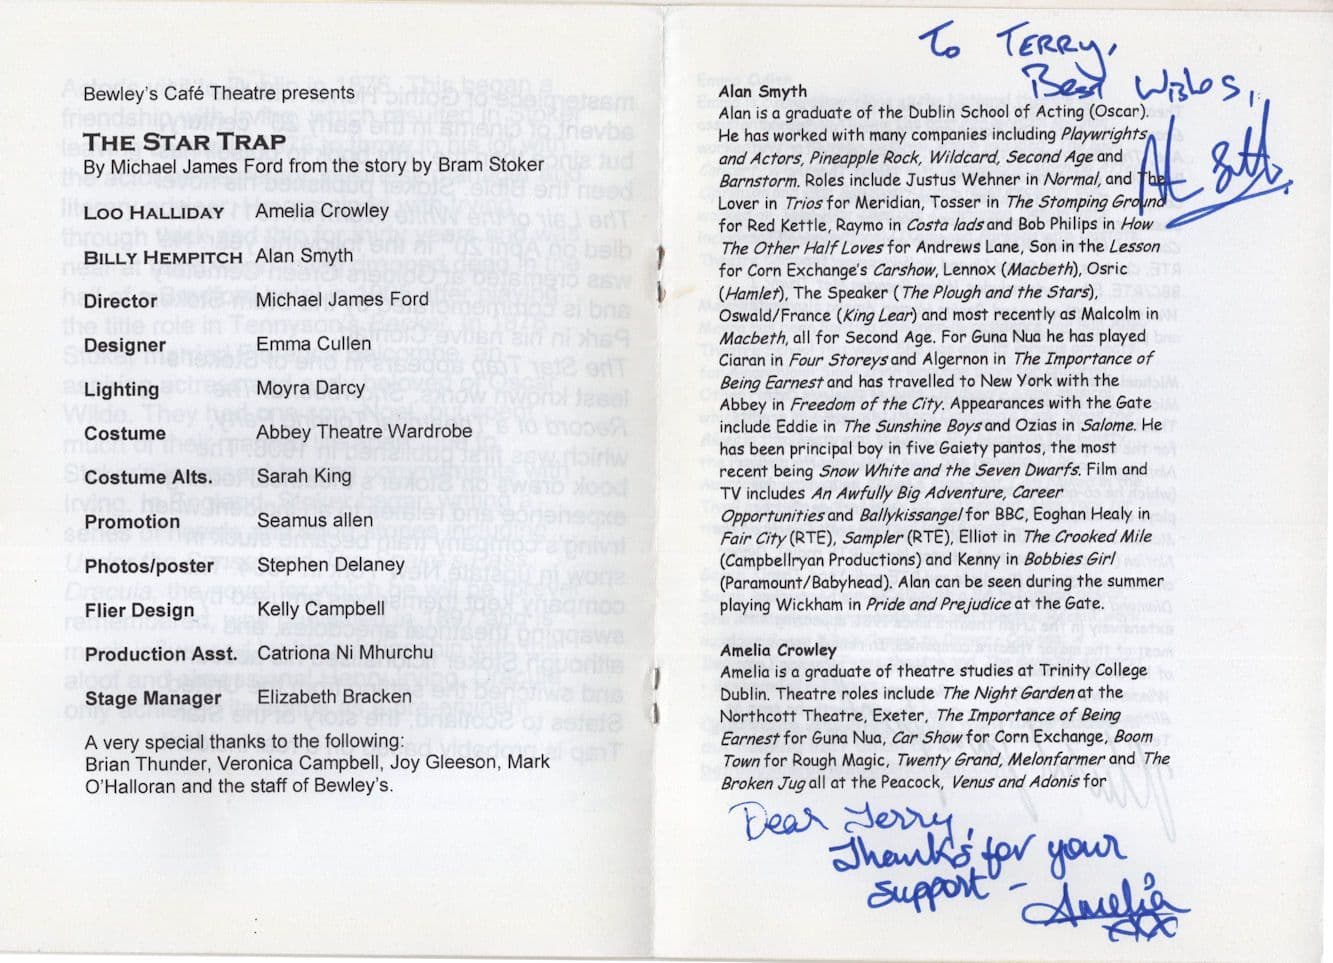 Bewley's Café Theatre presents
THE STAR TRAP
By Michael James Ford from the story by Bram Stoker
LOO HALLIDAY Amelia Crowley
BILLY HEMPITCH Alan Smyth
Director Michael James Ford
Designer Emma Cullen
Lighting Moyra Darcy
Costume Abbey Theatre Wardrobe
Costume Alts. Sarah King
Promotion Seamus allen
Photos/poster Stephen Delaney
Flier Design Kelly Campbell
Production Asst. Catriona Ni Mhurchu
Stage Manager Elizabeth Bracken
A very special thanks to the following:
Brian Thunder, Veronica Campbell, Joy Gleeson, Mark
O'Halloran and the staff of Bewley's.
To TERRY,
Best Wishes,
Alan Smyth
Alan is a graduate of the Dublin School of Acting (Oscar).
He has worked with many companies including Playwrights
and Actors, Pineapple Rock, Wildcard, Second Age and
Barnstorm. Roles include Justus Wehner in Normal, and The
Lover in Trios for Meridian, Tosser in The Stomping Ground
for Red Kettle, Raymo in Costa lads and Bob Philips in How
The Other Half Loves for Andrews Lane, Son in the Lesson
for Corn Exchange's Carshow, Lennox (Macbeth), Osric
(Hamlet), The Speaker (The Plough and the Stars),
Oswald/France (King Lear) and most recently as Malcolm in
Macbeth, all for Second Age. For Guna Nua he has played
Ciaran in Four Storeys and Algernon in The Importance of
Being Earnest and has travelled to New York with the
Abbey in Freedom of the City. Appearances with the Gate
include Eddie in The Sunshine Boys and Ozias in Salome. He
has been principal boy in five Gaiety pantos, the most
recent being Snow White and the Seven Dwarfs. Film and
TV includes An Awfully Big Adventure, Career
Opportunities and Ballykissangel for BBC, Eoghan Healy in
Fair City (RTE), Sampler (RTE), Elliot in The Crooked Mile
(Campbellryan Productions) and Kenny in Bobbies Girl
(Paramount/Babyhead). Alan can be seen during the summer
playing Wickham in Pride and Prejudice at the Gate.
Amelia Crowley
Amelia is a graduate of theatre studies at Trinity College
Dublin. Theatre roles include The Night Garden at the
Northcott Theatre, Exeter, The Importance of Being
Earnest for Guna Nua, Car Show for Corn Exchange, Boom
Town for Rough Magic, Twenty Grand, Melonfarmer and The
Broken Jug all at the Peacock, Venus and Adonis for
Dear Terry,
Thanks for your
support -
Amelia
xxx